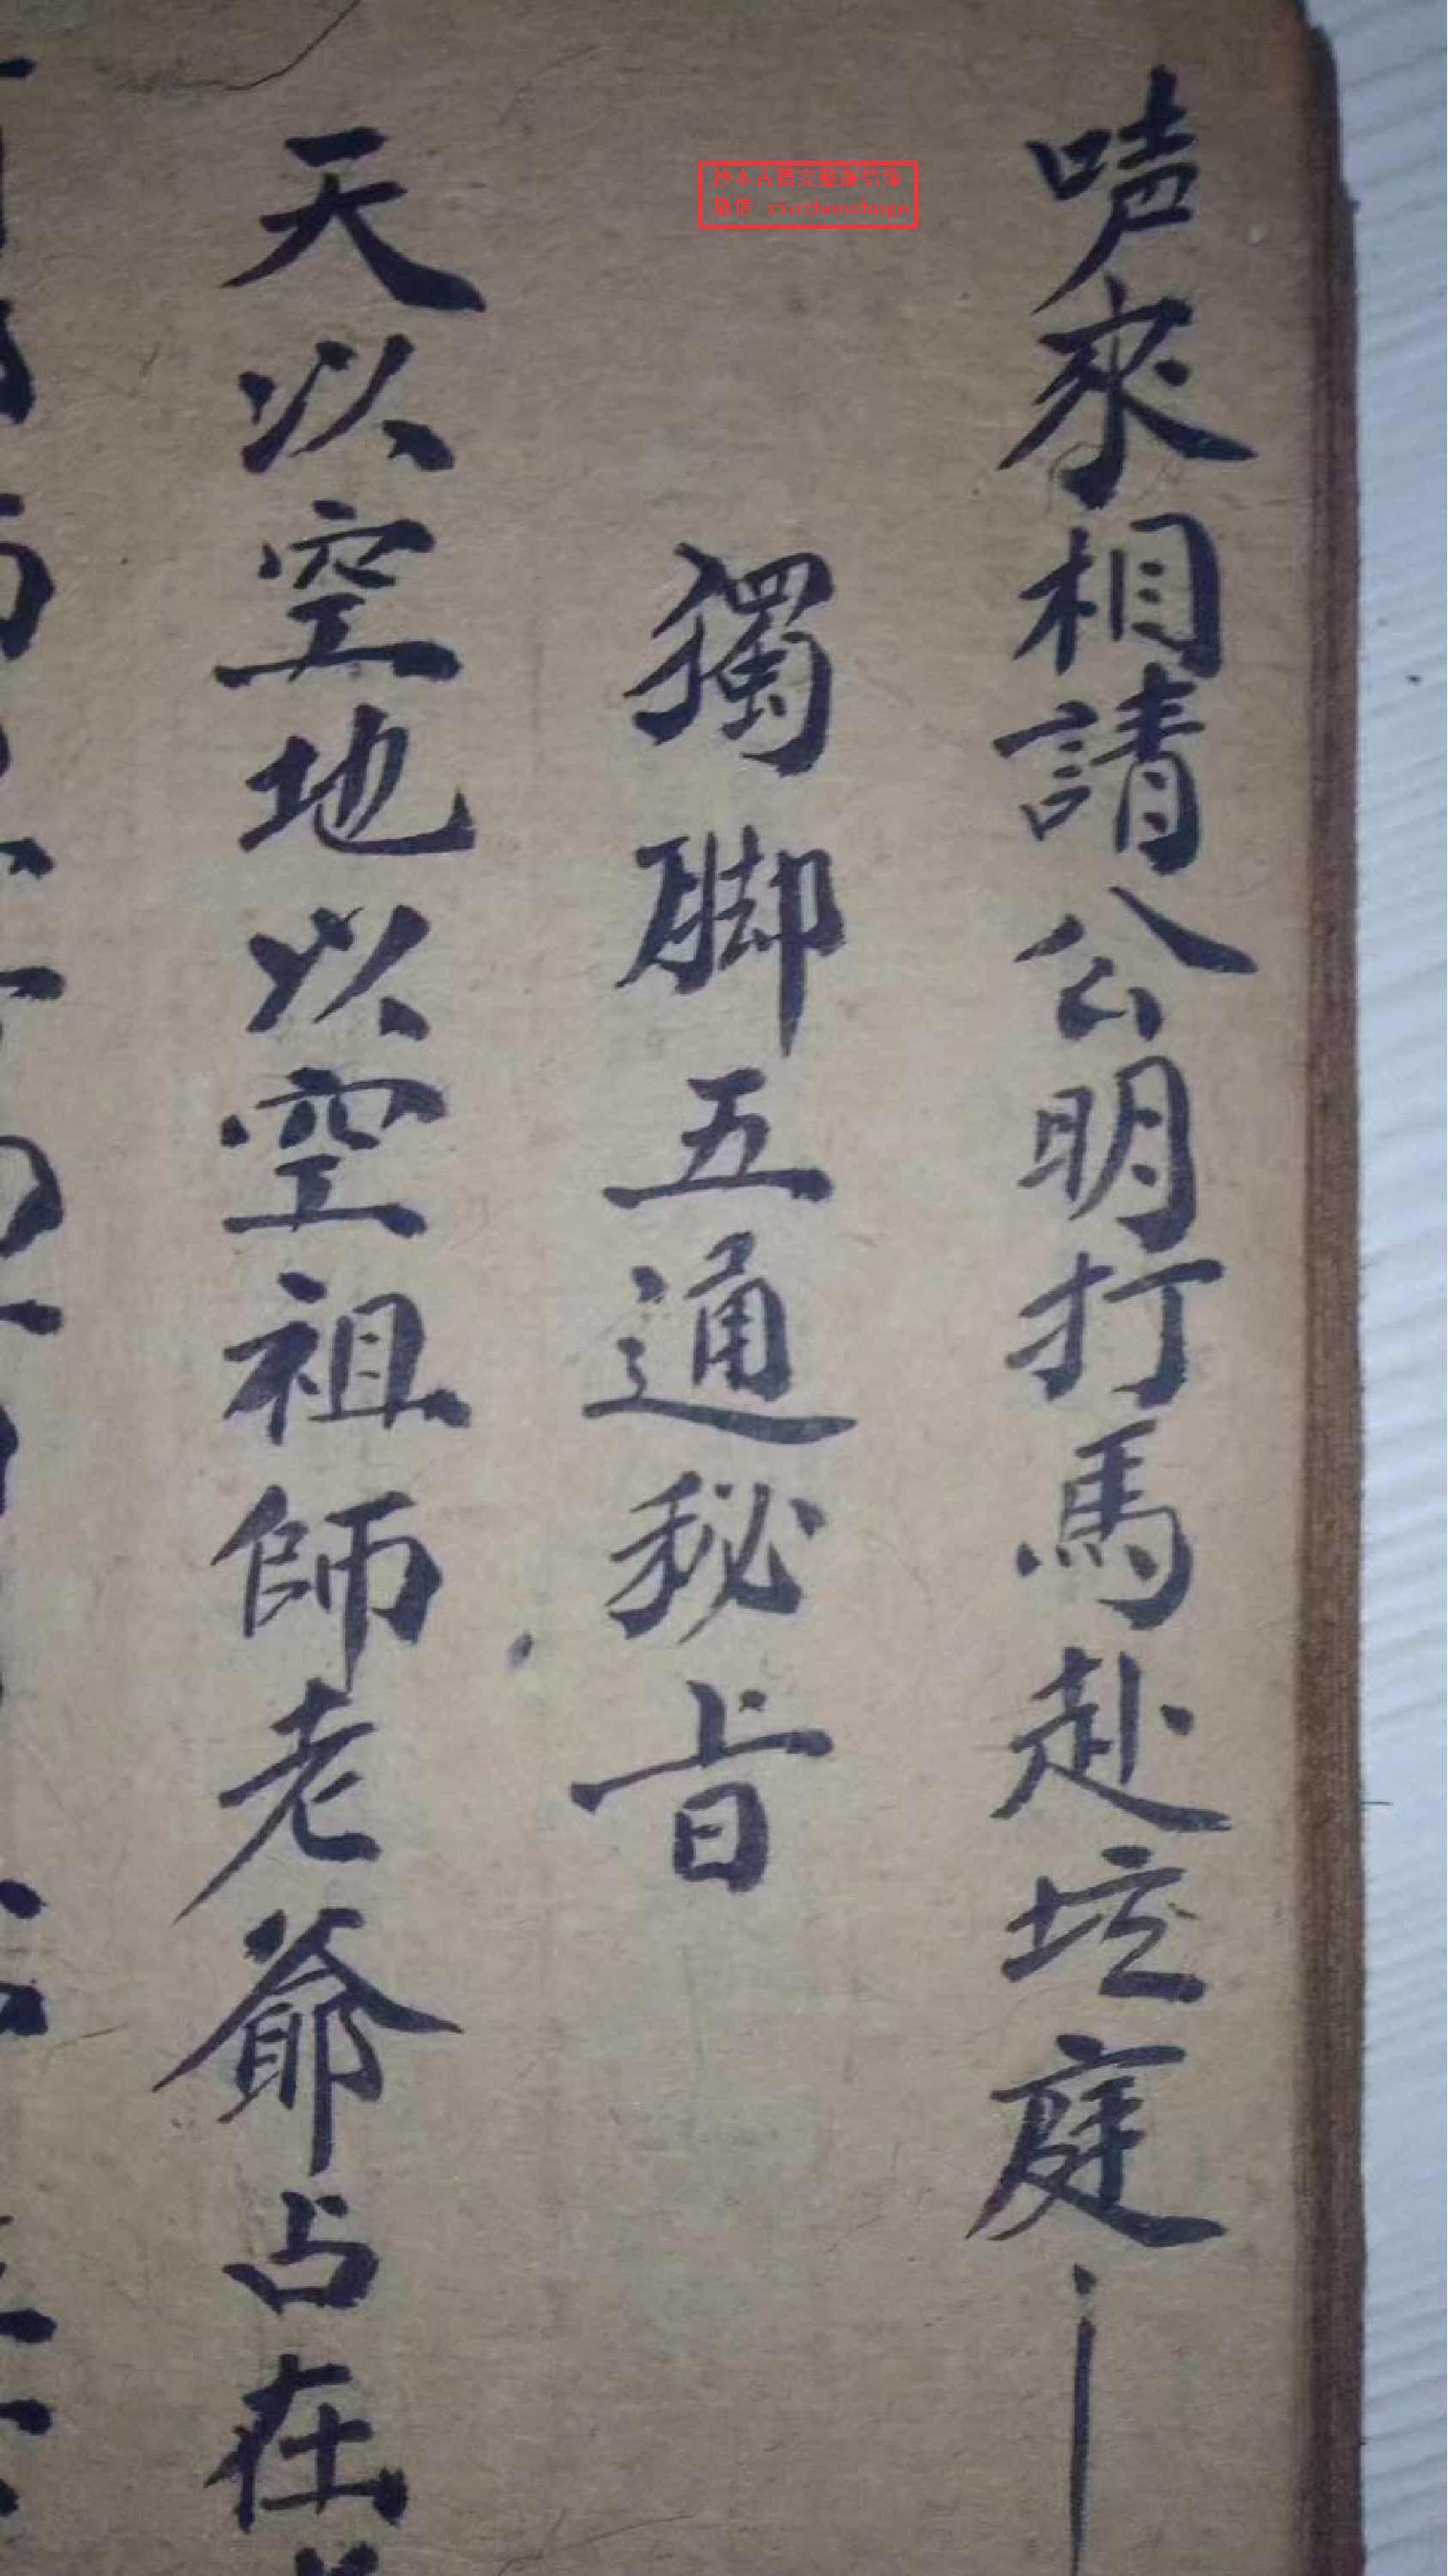 衆相請公明打馬赴坛庭
抄本古籍完整版结缘
微信 xiuzhenshuge
獨脚五通秘旨
天以空地以空祖師老爺占在